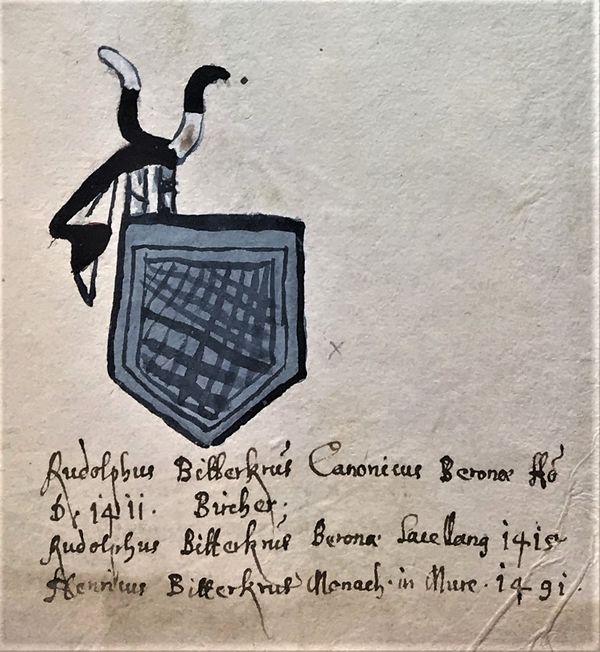 Rudolphus Bitterkrus Canonicus Beronæ
D. 1411. Bircher;
Rudolphus Bitterkrus Beronæ Lacellang 1415
Henricus Bitterkrus Monach. in Mure. 1491.